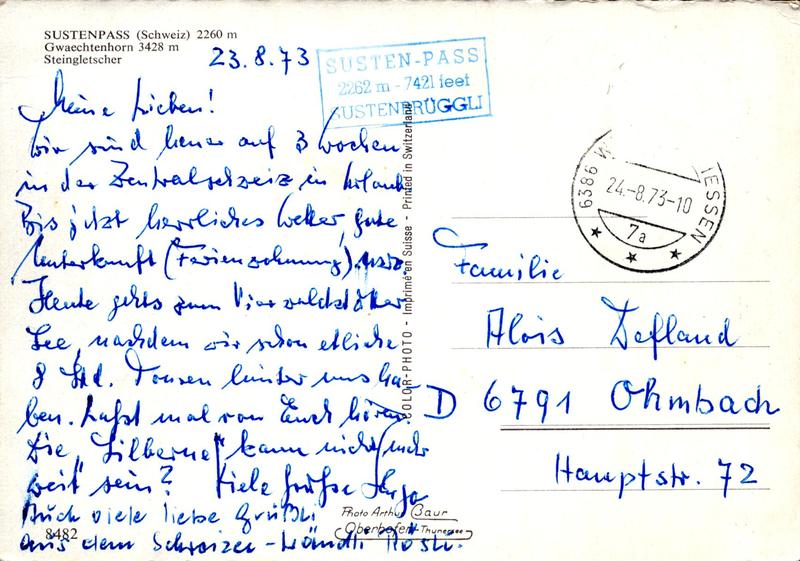 SUSTENPASS (Schweiz) 2260 m
Gwaechtenhorn 3428 m
Steingletscher
23.8.73
SUSTEN-PASS
2262 m - 7421 feet
SUSTENBRÜGGLI
Meine Lieben!
Wir sind heuer auf 3 Wochen
in der Zentralschweiz in Urlaub
Bis jetzt herrliches Wetter, gute
Unterkunft (Ferienwohnung)
Heute gehts zum Vierwaldstätter
See, nachdem wir schon etliche
8 Std. Touren hinter uns ha-
ben. Laßt mal von Euch hören
Die "Silberne" kann nicht mehr
weit sein? Viele Grüße
Auch viele liebe Grüßli
aus dem Schweizer-Ländli
8482
COLOR-PHOTO - Imprimé en Suisse - Printed in Switzerland
Photo Arthur Baur
Oberhofen-Thunersee
6386 W IESSEN
24.-8.73-10
7a
Familie
Alois Defland
D 6791 Ohmbach
Hauptstr. 72